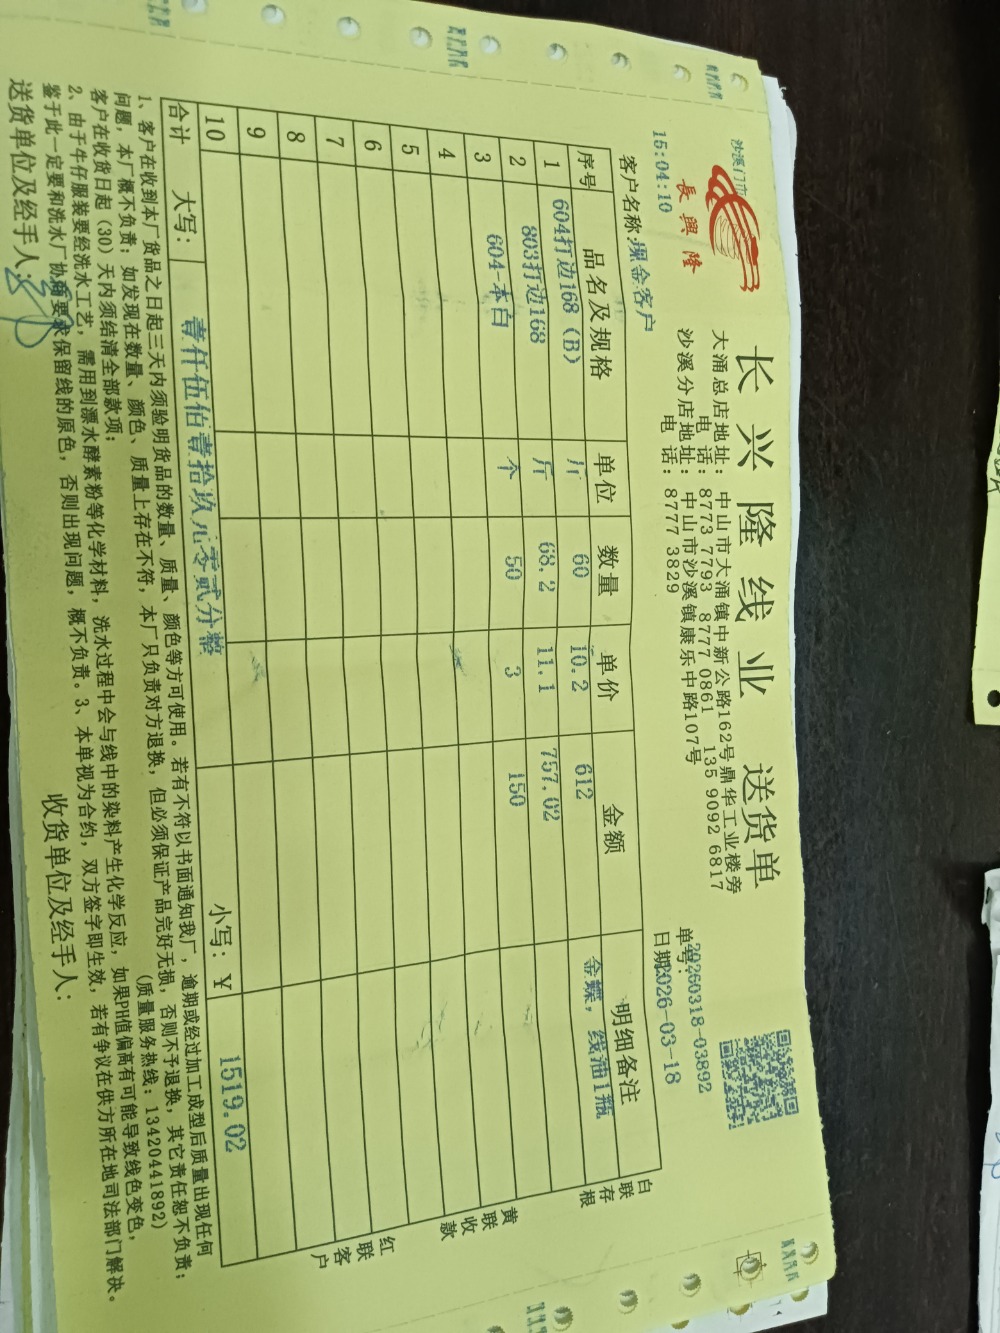 沙溪门市
長興隆
长兴隆线业 送货单
大涌总店地址：中山市大涌镇中新公路162号鼎华工业楼旁
电话：8773 7793 8777 0861 135 9092 6817
沙溪分店地址：中山市沙溪镇康乐中路107号
电话：8777 3829
单号：20260318-03892
15:04:10
日期：2026-03-18
客户名称：现金客户
序号 品名及规格 单位 数量 单价 金额 明细备注
1 604打边168（B） 斤 60 10.2 612 金蝶，线油1瓶
2 803打边168 斤 68.2 11.1 757.02
3 604-本白 个 50 3 150
4
5
6
7
8
9
10
合计 大写：壹仟伍佰壹拾玖元零贰分整 小写：¥ 1519.02
白联存根
黄联收款
红联客户
1、客户在收到本厂货品之日起三天内须验明货品的数量、质量、颜色等方可使用。若有不符以书面通知我厂，逾期或经过加工成型后质量出现任何
问题，本厂概不负责；如发现在数量、颜色、质量上存在不符，本厂只负责对方退换，但必须保证产品完好无损，否则不予退换，其它责任恕不负责；
客户在收货日起（30）天内须结清全部款项； （质量服务热线：13420441892）
2、由于牛仔服装要经洗水工艺，需用到漂水酵素粉等化学材料，洗水过程中会与线中的染料产生化学反应，如果PH值偏高有可能导致线色变色，
鉴于此一定要和洗水厂协商要求保留线的原色，否则出现问题，概不负责。3、本单视为合约，双方签字即生效，若有争议在供方所在地司法部门解决。
送货单位及经手人： 收货单位及经手人：